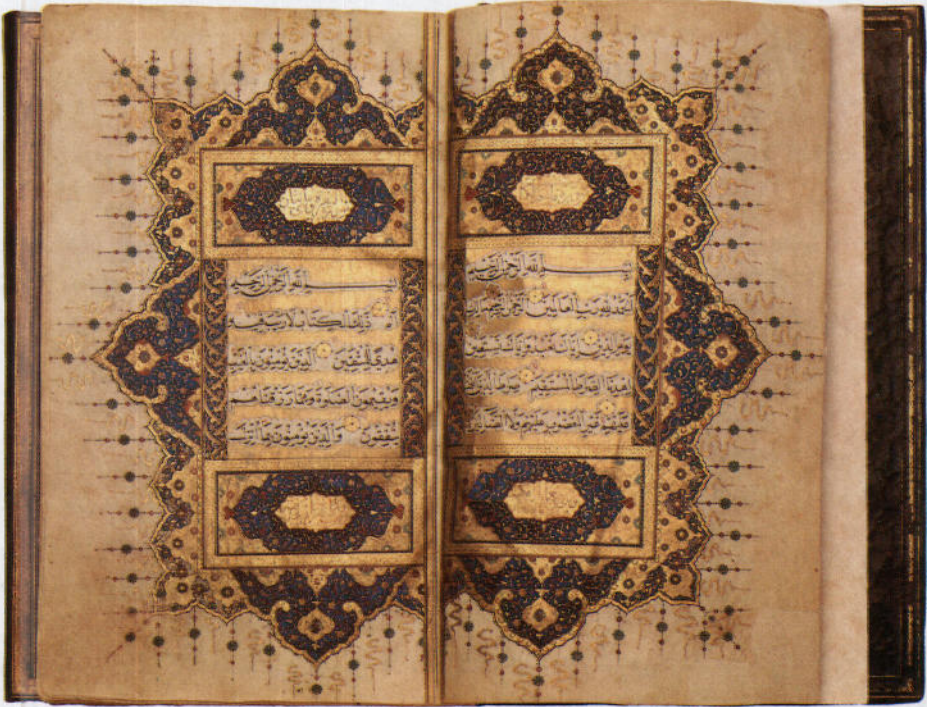 بسم الله الرحمن الرحيم
الحمد لله رب العالمين الرحمن الرحيم
يوم الدين اياك نعبد واياك نستعين
اهدنا الصراط المستقيم صراط الذين
عليهم غير المغضوب عليهم ولا الضالين
بسم الله الرحمن الرحيم
الم ذلك الكتاب لا ريب فيه
هدى للمتقين الذين يؤمنون بالغيب
ويقيمون الصلوة ومما رزقناهم
ينفقون والذين يؤمنون بما انزل